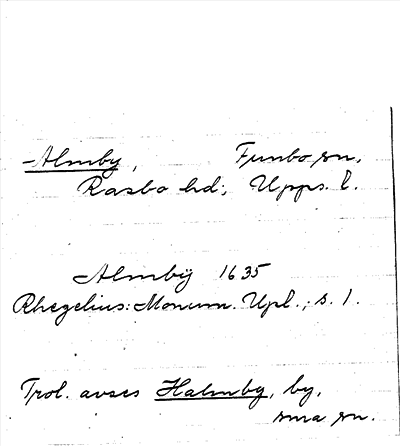 -Almby, Funbo sn,
Rasbo hd; Upps. l.
Almbÿ 1635
Rhezelius: Monum. Upl.; s. 1.
Trol. avses Halmby, by,
sma sn.